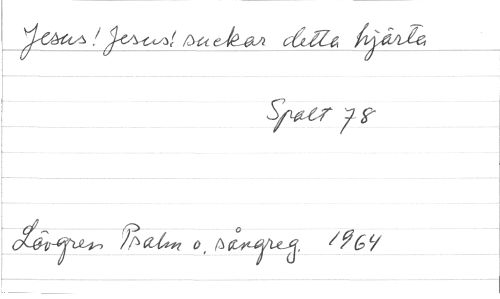 Jesus! Jesus! suckar detta hjärta
Spalt 78
Lövgren Psalm o. sångreg. 1964